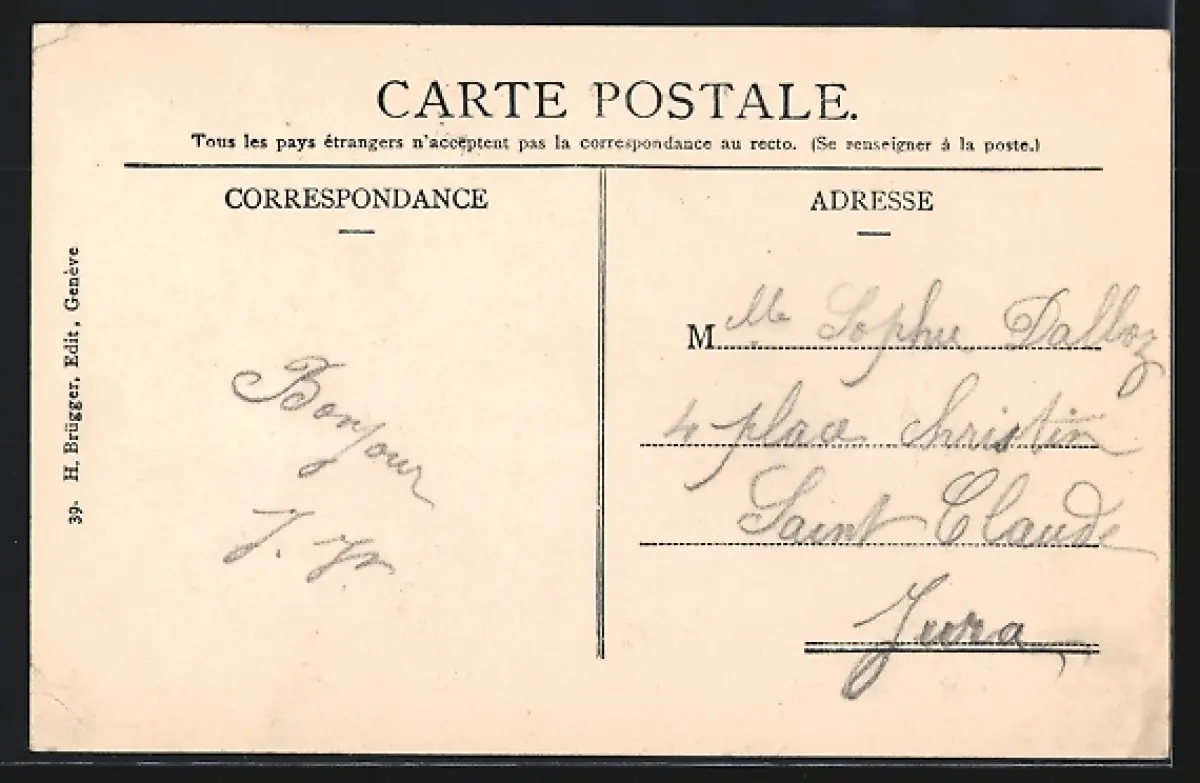 CARTE POSTALE.
Tous les pays étrangers n'acceptent pas la correspondance au recto. (Se renseigner à la poste.)
CORRESPONDANCE
Bonjour
J.
ADRESSE
Mlle Sophie Dalloz
4 place Christin
Saint Claude
Jura
39- H. Brügger, Edit, Genève